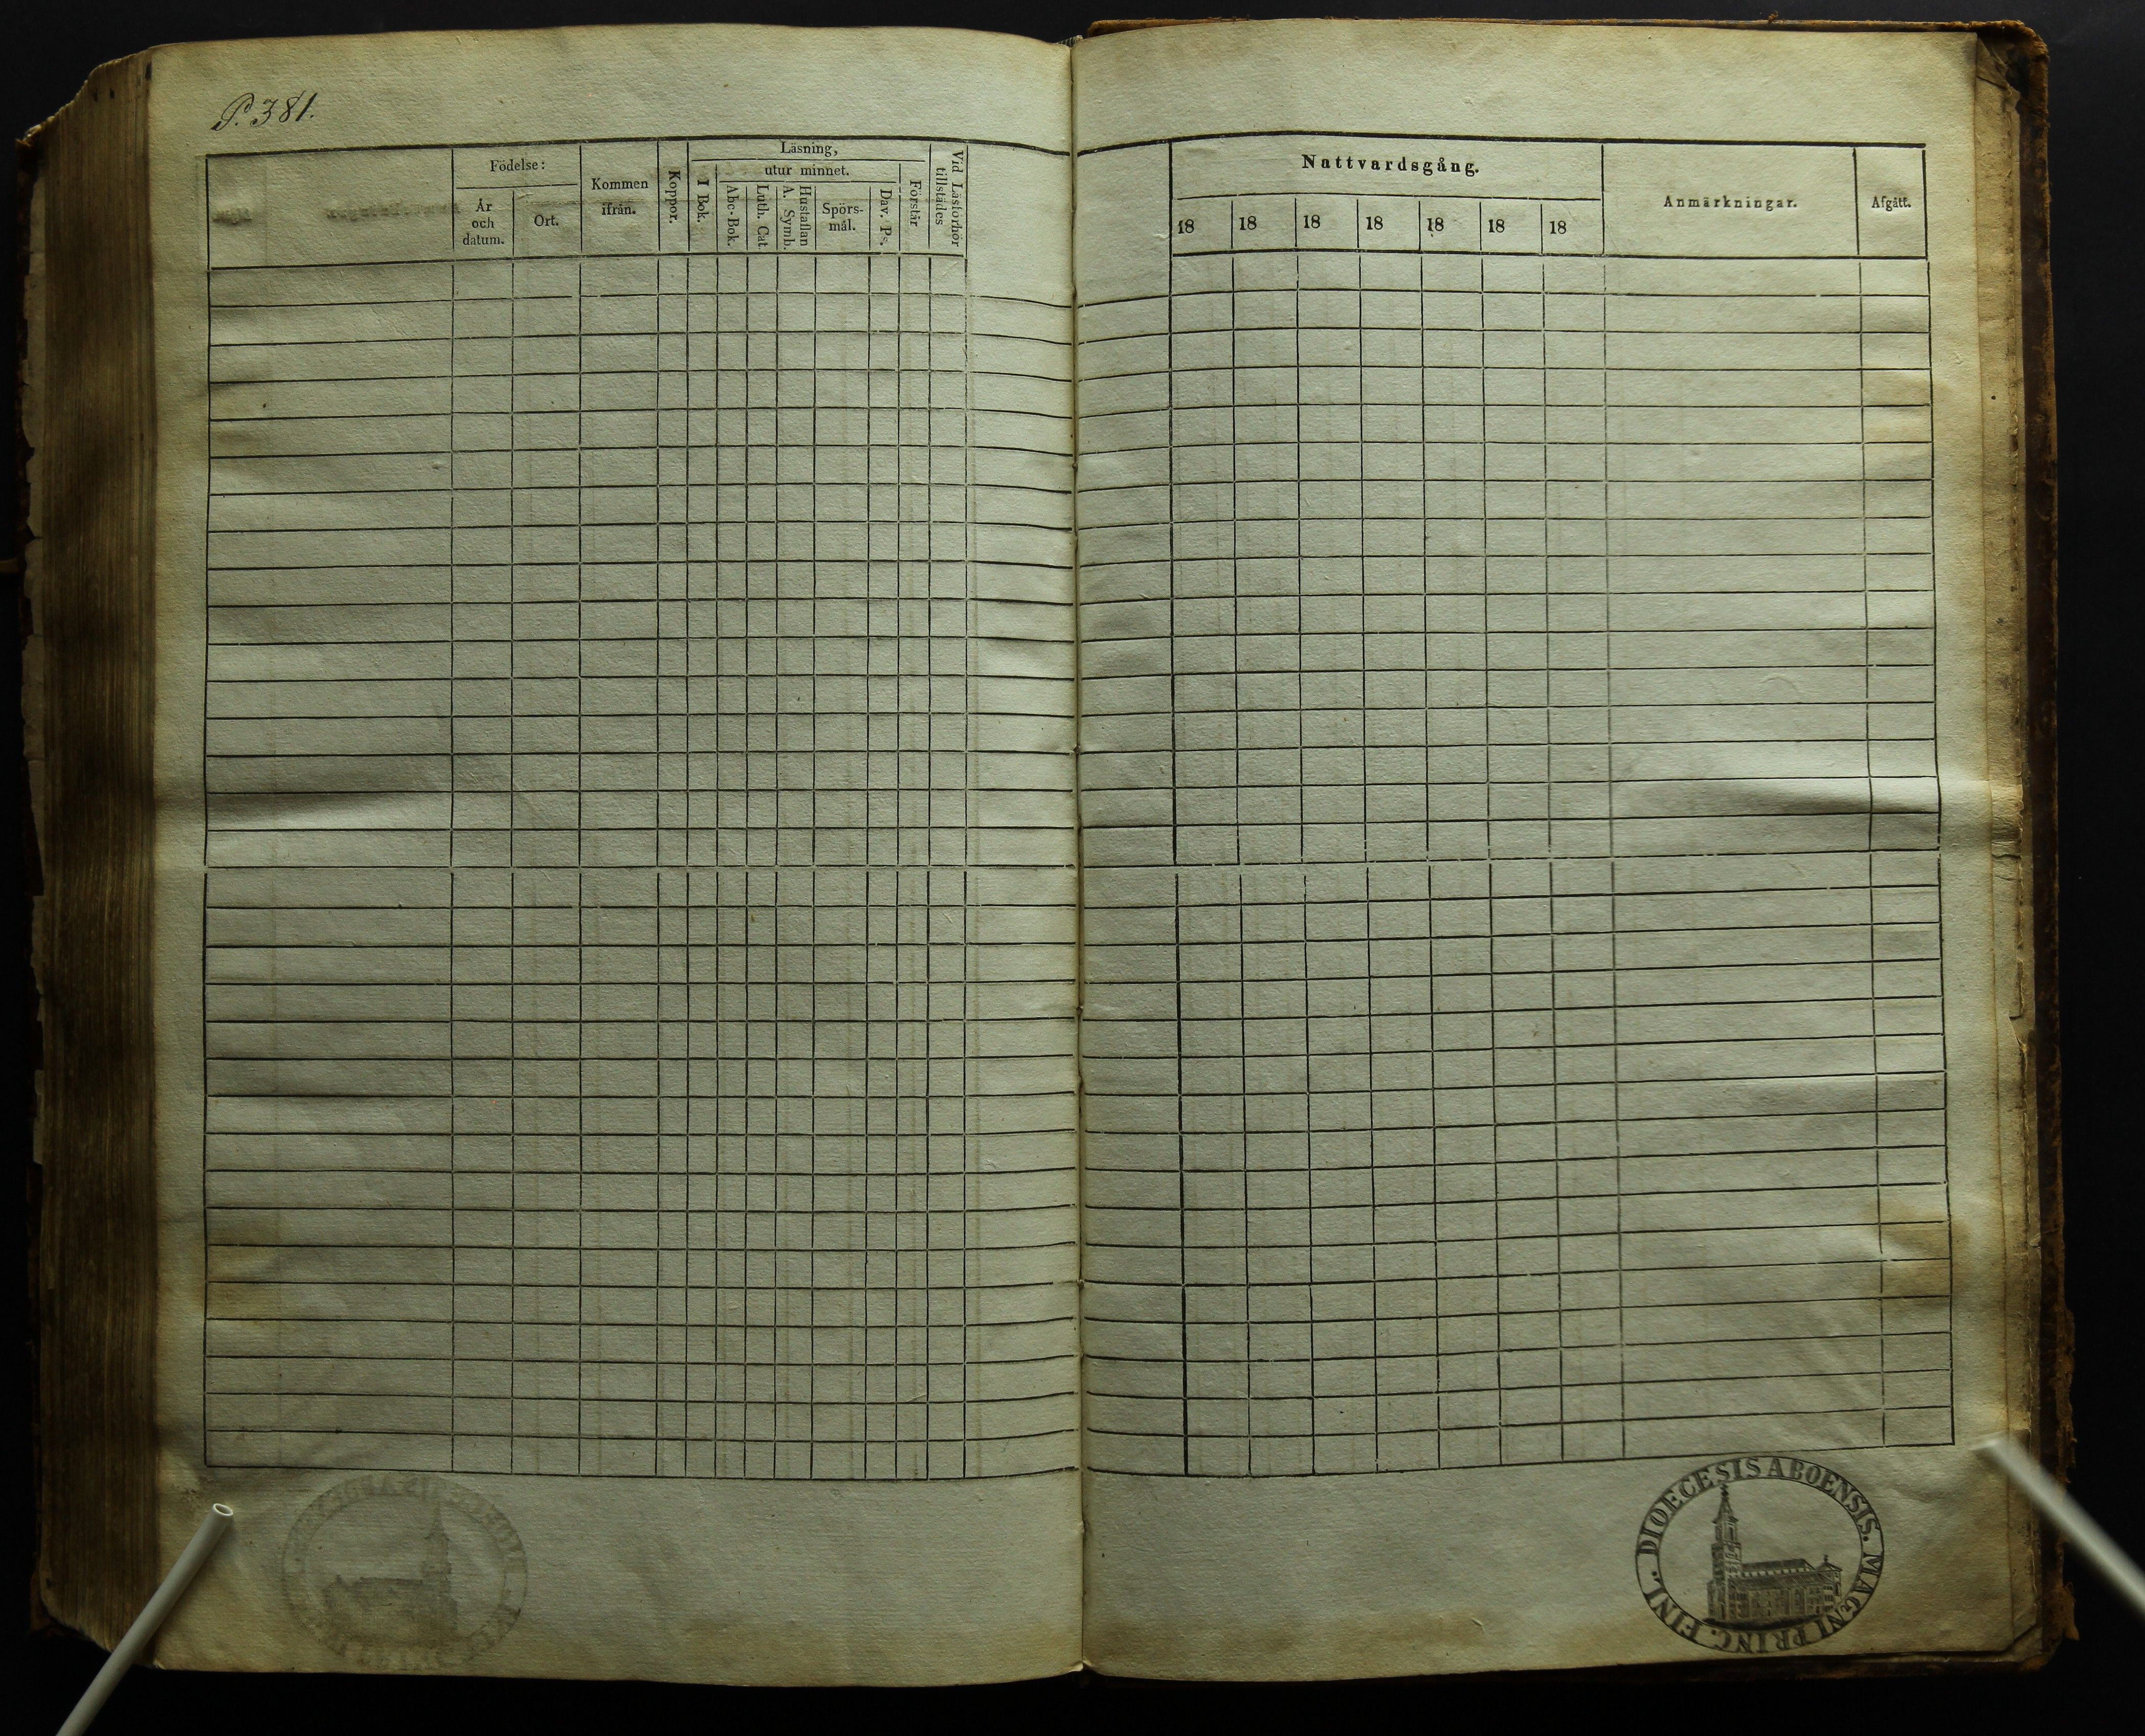 P. 381.
Födelse:
År och datum.
Ort.
Kommen ifrån.
Koppor.
Läsning,
I Bok.
utur minnet.
Abc-Bok.
Luth. Cat.
Hustaflan A. Symb.
Spörs-mål.
Dav. Ps.
Förstår
Vid Läsförhör tillstädes
Nattvardsgång.
18 18 18 18 18 18 18
Anmärkningar.
Afgått.
DIOECESIS ABOENSIS. MAGNI PRINC. FINL.